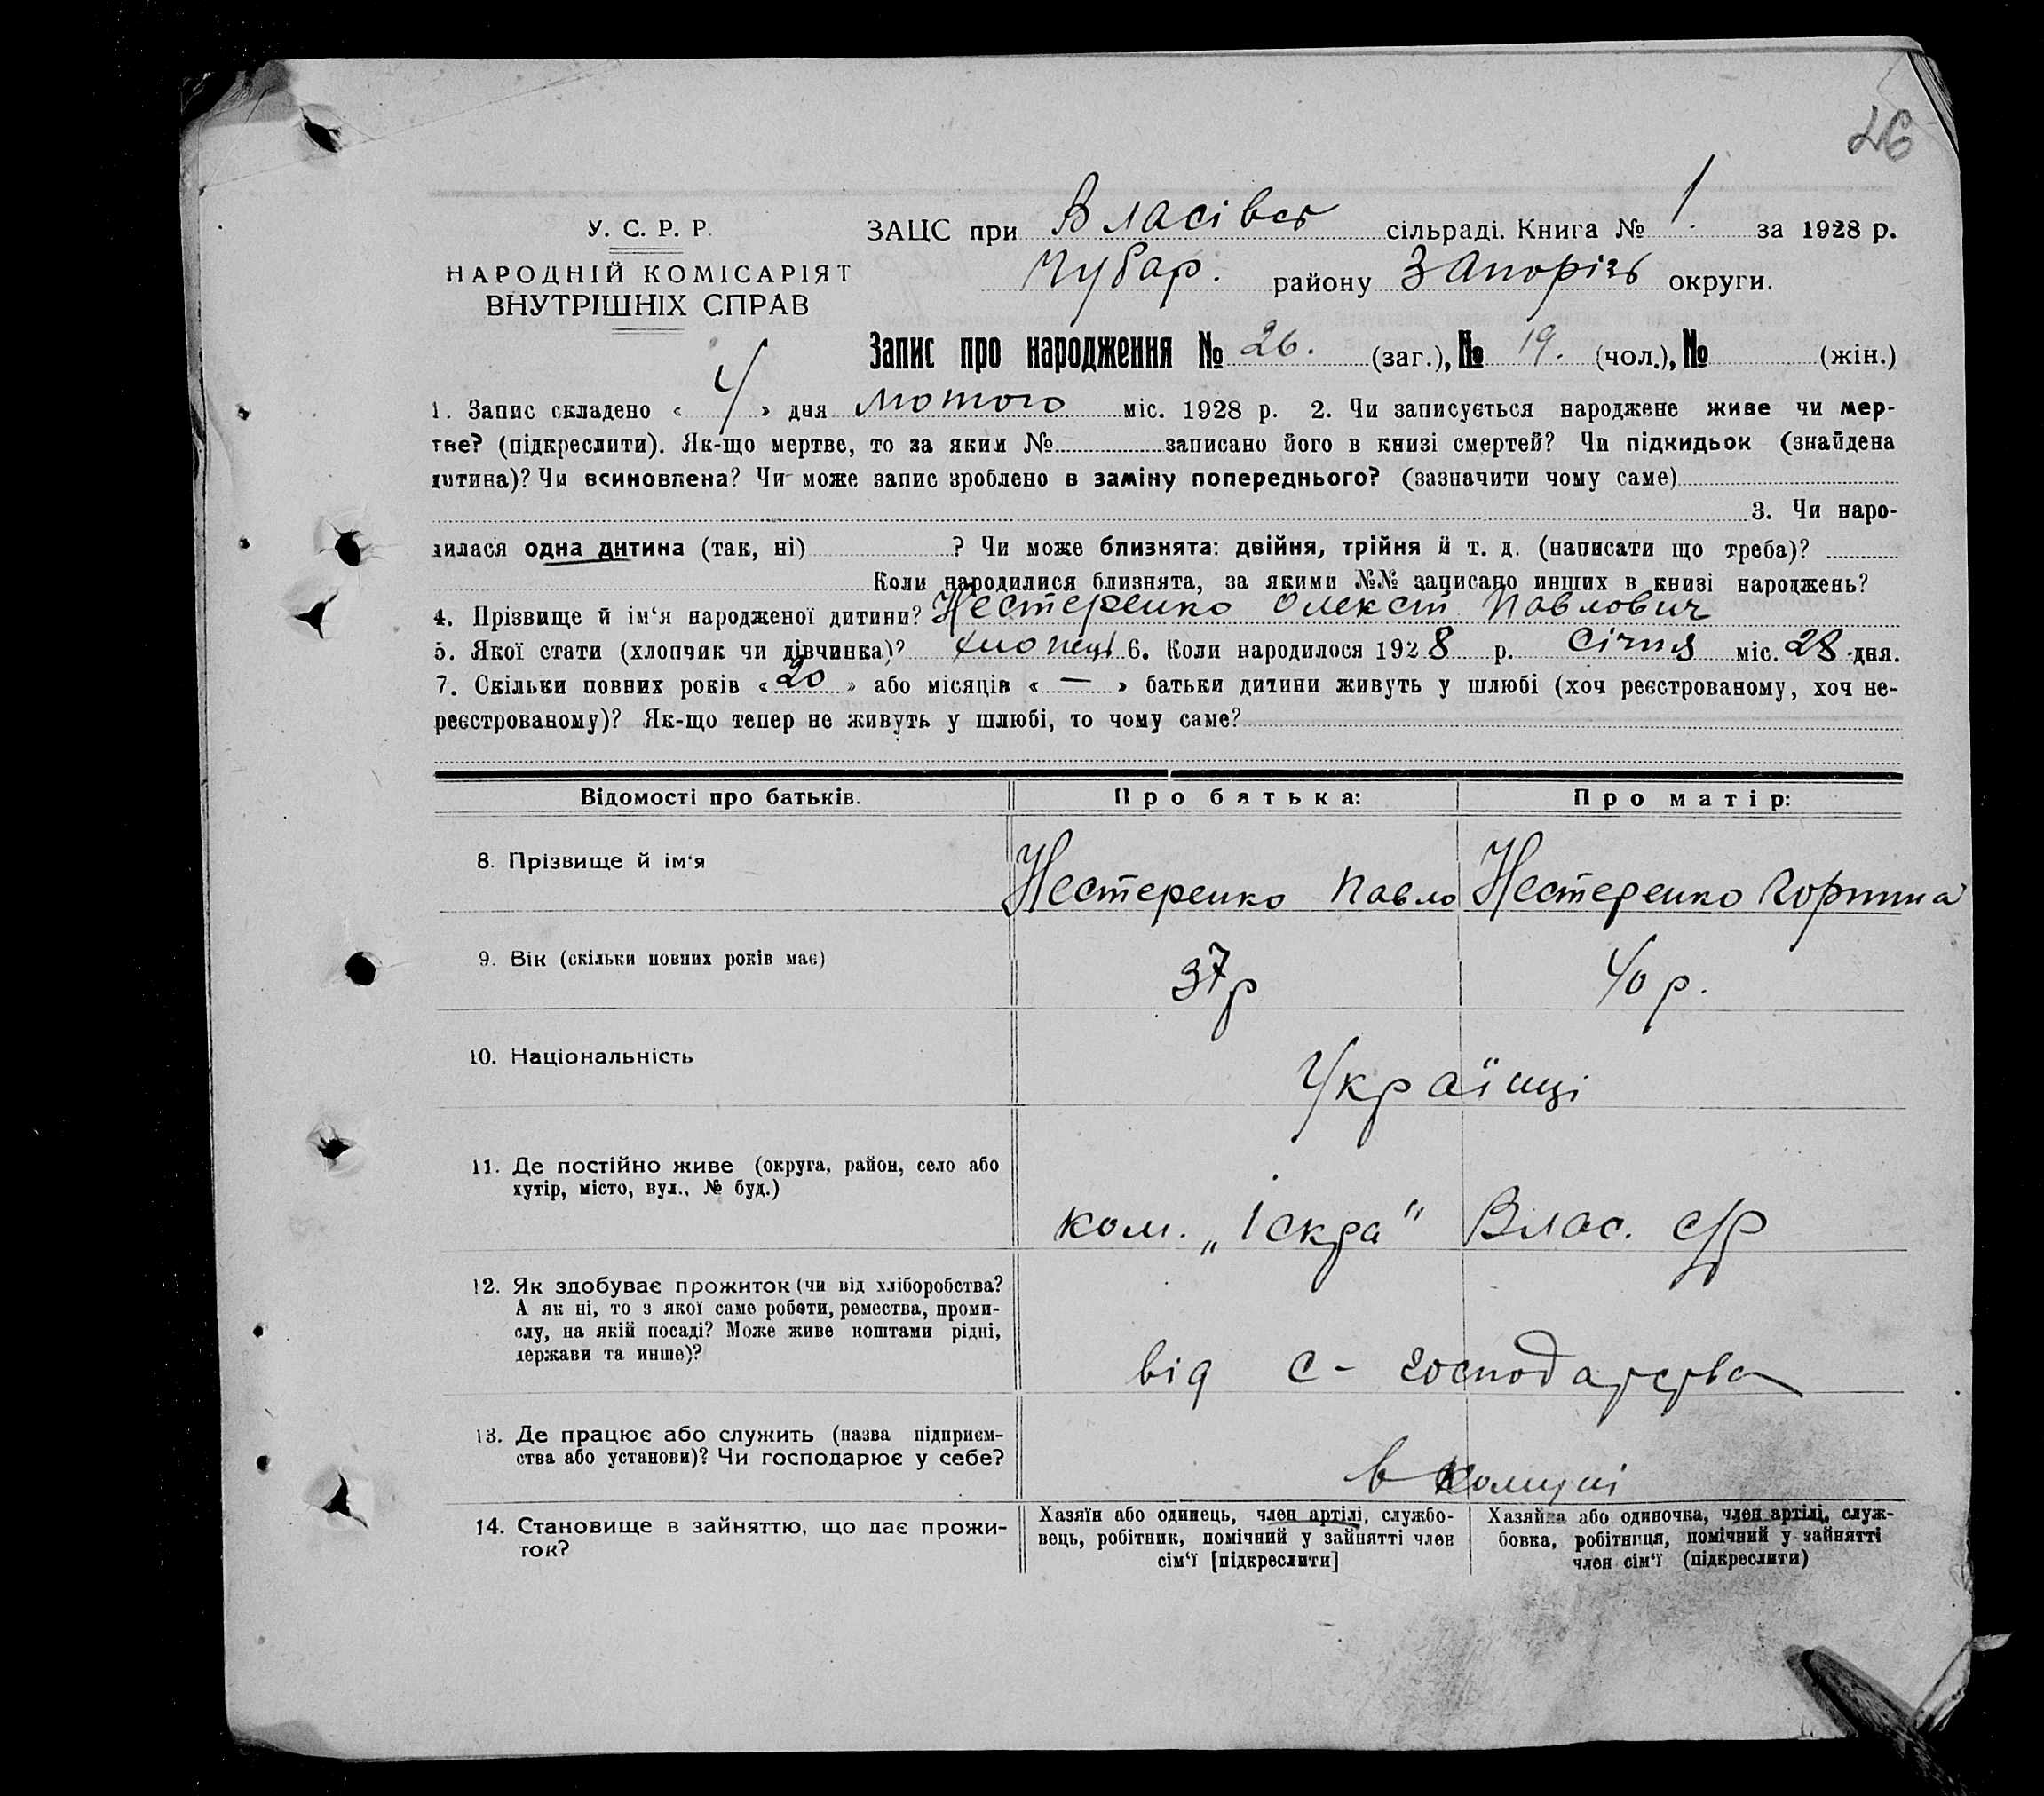 26
У. С. Р. Р.
НАРОДНІЙ КОМІСАРІЯТ
ВНУТРІШНІХ СПРАВ
ЗАЦС при Власівсь сільраді. Книга № 1 за 1928 р.
Чубар. району Запоріз округи.
Запис про народження № 26. (заг.), № 19. (чол.), № (жін.)
1. Запис складено « 4 » дня лютого міс. 1928 р. 2. Чи записується народжене живе чи мер-
тве? (підкреслити). Як-що мертве, то за яким № записано його в книзі смертей? Чи підкидьок (знайдена
дитина)? Чи всиновлена? Чи може запис зроблено в заміну попереднього? (зазначити чому саме)
3. Чи наро-
дилася одна дитина (так, ні) ? Чи може близнята: двійня, трійня й т. д. (написати що треба)?
Коли народилися близнята, за якими №№ записано инших в книзі народжень?
4. Прізвище й ім'я народженої дитини? Нестеренко Олексій Павлович
5. Якої стати (хлопчик чи дівчинка)? хлопець 6. Коли народилося 1928 р. Січня міс. 28 дня.
7. Скільки повних років « 20 » або місяців « — » батьки дитини живуть у шлюбі (хоч реєстрованому, хоч не-
реєстрованому)? Як-що тепер не живуть у шлюбі, то чому саме?
Відомості про батьків. Про батька: Про матір:
8. Прізвище й ім'я Нестеренко Павло Нестеренко Горпина
9. Вік (скільки повних років має) 37 р 40 р.
10. Національність Українці
11. Де постійно живе (округа, район, село або
хутір, місто, вул., № буд.)
ком. „Іскра" Влас. с/р
12. Як здобуває прожиток (чи від хліборобства?
А як ні, то з якої саме роботи, ремества, проми-
слу, на якій посаді? Може живе коштами рідні,
держави та инше)?
від с-господарства
13. Де працює або служить (назва підприєм-
ства або установи)? Чи господарює у себе?
в комуні
14. Становище в зайняттю, що дає прожи-
ток?
Хазяїн або одинець, член артілі, службо-
вець, робітник, помічний у зайнятті член
сім'ї [підкреслити]
Хазяйка або одиночка, член артілі, служ-
бовка, робітниця, помічний у зайнятті
член сім'ї (підкреслити)